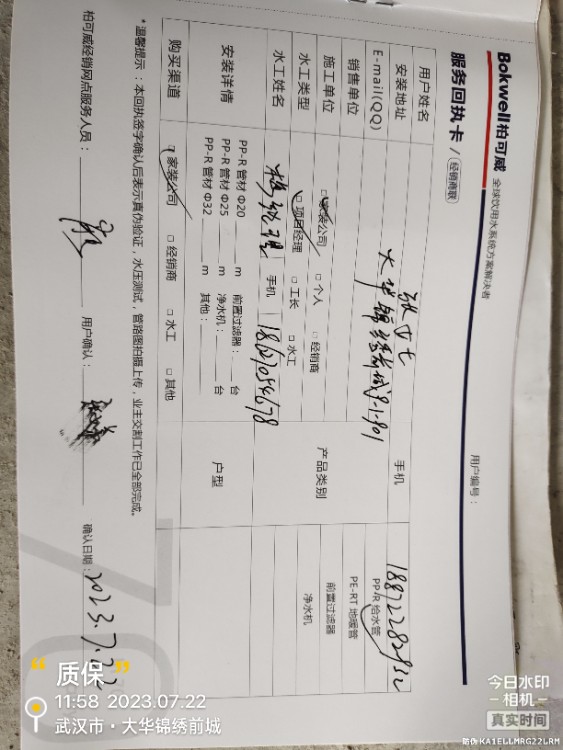 Bokwell柏可威 全球饮用水系统方案解决者
服务回执卡 / 经销商联
用户编号：
用户姓名 手机
安装地址 大华锦绣前城8-1-901
E-mail(QQ)
销售单位
产品类别 PP-R 给水管
PE-RT 地暖管
前置过滤器
净水机
施工单位 □家装公司 □个人 □经销商
水工类型 □项目经理 □工长 □水工
水工姓名 杨经理 手机
安装详情
PP-R 管材 Φ20 m 前置过滤器： 台
PP-R 管材 Φ25 m 净水机： 台
PP-R 管材 Φ32 m 其他：
户型
购买渠道 □家装公司 □经销商 □水工 □其他
*温馨提示：本回执签字确认后表示真伪验证，水压测试，管路图拍摄上传，业主交割工作已全部完成。
柏可威经销网点服务人员： 用户确认： 确认日期：2023.7.22
“ 质保 ”
11:58 2023.07.22
武汉市·大华锦绣前城
今日水印
相机
真实时间
防伪KA1ELLMRG22LRM